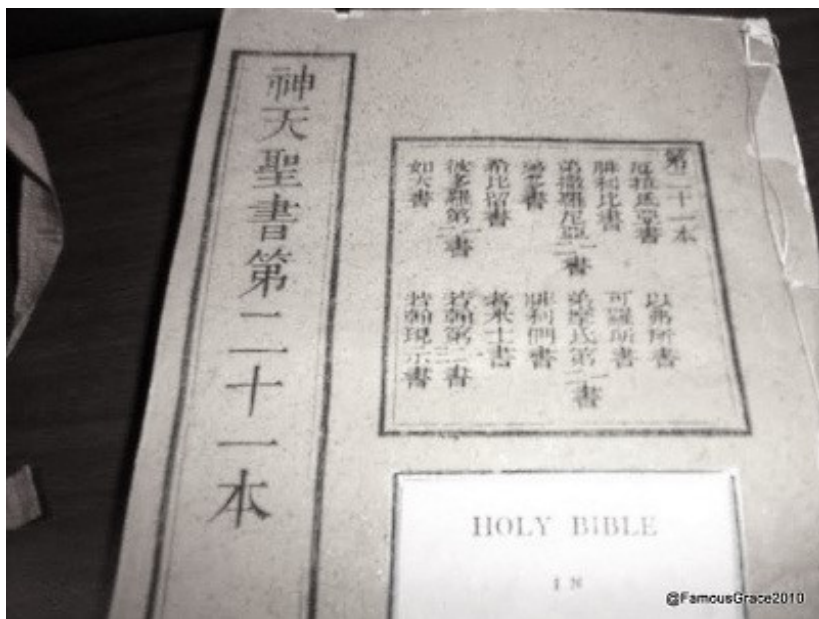 神天聖書第二十一本
第二十一本
厄拉氐亞書 以弗所書
腓利比書 可羅所書
弟撒羅尼亞二書 弟摩氐第二書
書 腓利們書
希比留書 者米士書
彼多羅第二書 若翰第三書
如大書 若翰現示書
HOLY BIBLE
IN
@FamousGrace2010